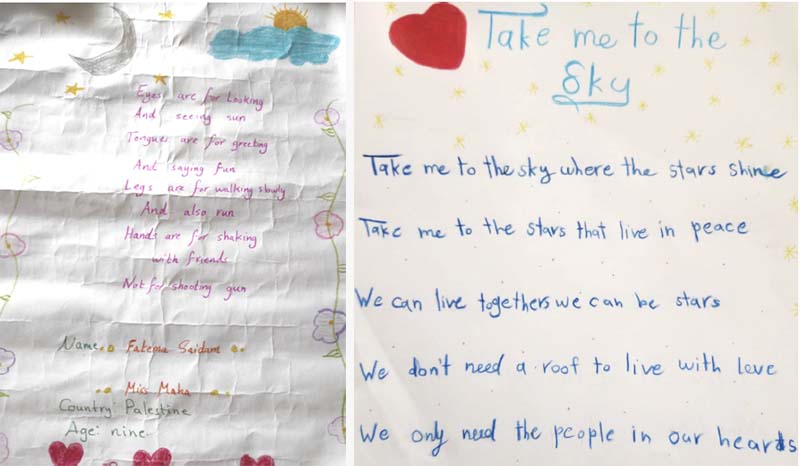 Eyes are for Looking
And seeing sun
Tongues are for greeting
And saying fun
Legs are for walking slowly
And also run
Hands are for shaking
with friends
Not for shooting gun
Name: Fatema Saidam
Miss Maha
Country: Palestine
Age: nine
Take me to the
Sky
Take me to the sky where the stars shine
Take me to the stars that live in peace
We can live togethers we can be stars
We don't need a roof to live with love
We only need the people in our hearts